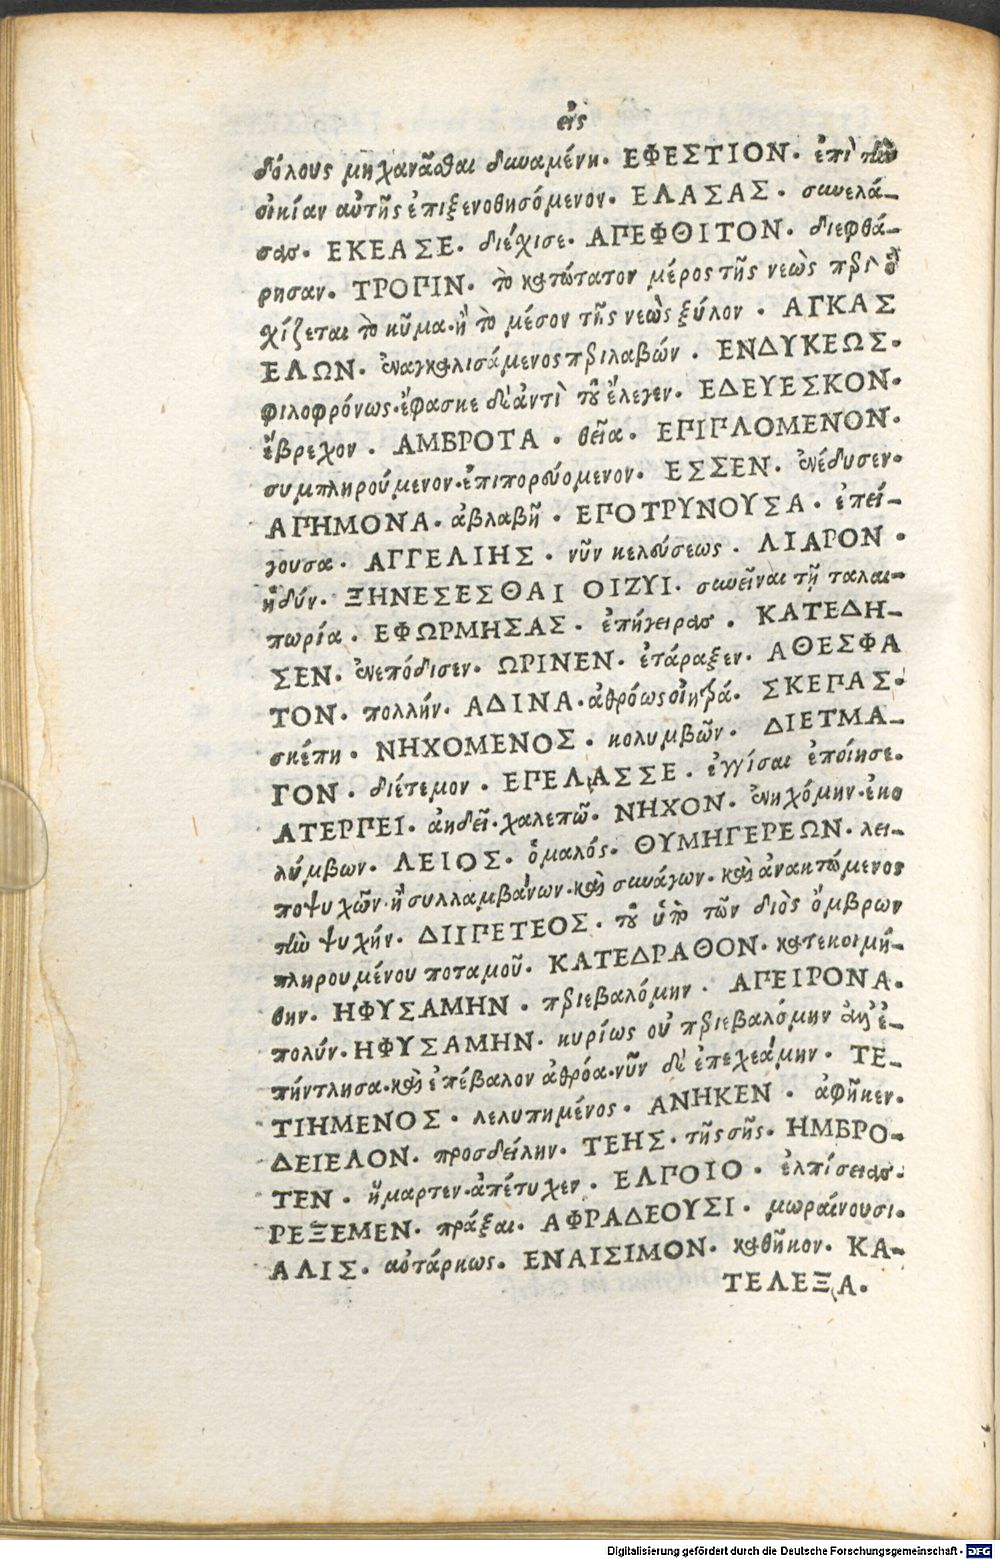 εἰς
δόλους μηχανᾶσθαι δυναμένη. ΕΦΕΣΤΙΟΝ. ἐπὶ τὴν
οἰκίαν αὐτῆς ἐπιξενοθησόμενον. ΕΛΑΣΑΣ. συνελά-
σας. ΕΚΕΑΣΕ. διέχισε. ΑΠΕΦΘΙΤΟΝ. διεφθά-
ρησαν. ΤΡΟΠΙΝ. τὸ κατώτατον μέρος τῆς νεὼς περὶ ὃ
χίζεται τὸ κῦμα. ἢ τὸ μέσον τῆς νεὼς ξύλον. ΑΓΚΑΣ
ΕΛΩΝ. ἐναγκαλισάμενος περιλαβών. ΕΝΔΥΚΕΩΣ.
φιλοφρόνως. ἔφασκε δὲ ἀντὶ τοῦ ἔλεγεν. ΕΔΕΥΕΣΚΟΝ.
ἔβρεχον. ΑΜΒΡΟΤΑ. θεῖα. ΕΠΙΠΛΟΜΕΝΟΝ.
συμπληρούμενον. ἐπιπορευόμενον. ΕΣΣΕΝ. ἐνέδυσεν.
ΑΠΗΜΟΝΑ. ἀβλαβῆ. ΕΠΟΤΡΥΝΟΥΣΑ. ἐπεί-
γουσα. ΑΓΓΕΛΙΗΣ. νῦν κελεύσεως. ΛΙΑΡΟΝ.
ἡδύν. ΞΗΝΕΣΕΣΘΑΙ ΟΙΖΥΙ. συνεῖναι τῇ ταλαι-
πωρία. ΕΦΩΡΜΗΣΑΣ. ἐπήγειρας. ΚΑΤΕΔΗ-
ΣΕΝ. ἐνεπόδισεν. ΩΡΙΝΕΝ. ἐτάραξεν. ΑΘΕΣΦΑ
ΤΟΝ. πολλήν. ΑΔΙΝΑ. ἀθρόως οἰκτρά. ΣΚΕΠΑΣ.
σκέπη. ΝΗΧΟΜΕΝΟΣ. κολυμβῶν. ΔΙΕΤΜΑ-
ΓΟΝ. διέτεμον. ΕΠΕΛΑΣΣΕ. ἐγγίσαι ἐποίησε.
ΑΤΕΡΠΕΙ. ἀηδεῖ. χαλεπῶ. ΝΗΧΟΝ. ἐνηχόμην. ἐκο
λύμβων. ΛΕΙΟΣ. ὁμαλός. ΘΥΜΗΓΕΡΕΩΝ. λει-
ποψυχῶν. ἢ συλλαμβάνων. καὶ συνάγων. καὶ ἀνακτώμενος
τὴν ψυχήν. ΔΙΙΠΕΤΕΟΣ. τοῦ ὑπὸ τῶν διὸς ὄμβρων
πληρουμένου ποταμοῦ. ΚΑΤΕΔΡΑΘΟΝ. κατεκοιμή-
θην. ΗΦΥΣΑΜΗΝ. περιεβαλόμην. ΑΠΕΙΡΟΝΑ.
πολύν. ΗΦΥΣΑΜΗΝ. κυρίως οὐ περιεβαλόμην ἀλλ' ἐ-
πήντλησα. καὶ ἐπέβαλον ἀθρόα. νῦν δὲ ἐπεχεάμην. ΤΕ-
ΤΙΗΜΕΝΟΣ. λελυπημένος. ΑΝΗΚΕΝ. ἀφῆκεν.
ΔΕΙΕΛΟΝ. προσδείλην. ΤΕΗΣ. τῆς σῆς. ΗΜΒΡΟ-
ΤΕΝ. ἥμαρτεν. ἀπέτυχεν. ΕΛΠΟΙΟ. ἐλπίσειας.
ΡΕΞΕΜΕΝ. πράξαι. ΑΦΡΑΔΕΟΥΣΙ. μωραίνουσι.
ΑΛΙΣ. αὐτάρκως. ΕΝΑΙΣΙΜΟΝ. καθῆκον. ΚΑ-
ΤΕΛΕΞΑ.
Digitalisierung gefördert durch die Deutsche Forschungsgemeinschaft - DFG